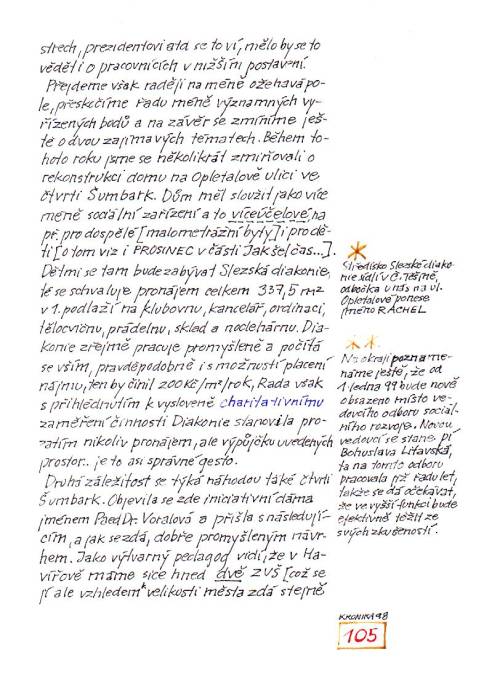 strech, prezidentovi atd se to ví, mělo by se to
věděti o pracovnících v nižším postavení.
Přejdeme však raději na méně ožehavá po-
le, přeskočíme řadu méně významných vy-
řízených bodů a na závěr se zmíníme ješ-
tě o dvou zajímavých tématech. Během to-
hoto roku jsme se několikrát zmiňovali o
rekonstrukci domu na Opletalově ulici ve
čtvrti Šumbark. Dům měl sloužit jako více
méně sociální zařízení a to víceúčelové, na
př. pro dospělé [malometrážní byty] i pro dě-
ti [o tom viz i PROSINEC v části Jak šel čas...].
Dětmi se tam bude zabývat Slezská diakonie,
té se schvaluje pronájem celkem 337,5 m2
v 1. podlaží na klubovnu, kancelář, ordinaci,
tělocvičnu, prádelnu, sklad a noclehárnu. Dia-
konie zřejmě pracuje promyšleně a počítá
se vším, pravděpodobně i s možností placení
nájmu, ten by činil 200 Kč/m2/rok, Rada však
s přihlédnutím k vysloveně charitativnímu
zaměření činnosti Diakonie stanovila pro-
zatím nikoliv pronájem, ale výpůjčku uvedených
prostor.. je to asi správné gesto.
Druhá záležitost se týká náhodou také čtvrti
Šumbark. Objevila se zde iniciativní dáma
jménem PaedDr. Voralová a přišla s následují-
cím, a jak se zdá, dobře promyšleným návr-
hem. Jako výtvarný pedagog vidí, že v Ha-
vířově máme sice hned dvě ZUŠ [což se
jí ale vzhledem k velikosti města zdá stejně
Středisko Slezské diako-
nie sídlí v Č. Těšíně,
odbočka u nás na ul.
Opletalově ponese
jméno RÁCHEL
Na okraji pozname-
náme ještě, že od
1. ledna 99 bude nově
obsazeno místo ve-
doucího odboru sociál-
ního rozvoje. Novou
vedoucí se stane pí
Bohuslava Litavská,
ta na tomto odboru
pracovala již řadu let,
takže se dá očekávat,
že ve vyšší funkci bude
efektivně těžit ze
svých zkušeností.
KRONIKA 98
105